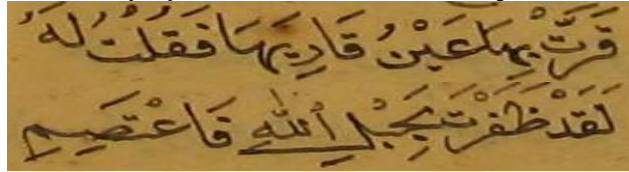 قَرَّتْ بِهَا عَيْنُ قَارِيهَا فَقُلْتُ لَهُ
لَقَدْ ظَفَرْتَ بِحَبْلِ اللهِ فَاعْتَصِمِ